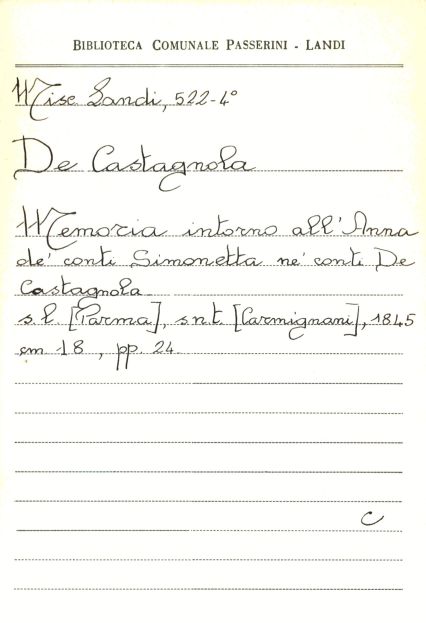 BIBLIOTECA COMUNALE PASSERINI - LANDI
Misc Landi, 522-4°
De Castagnola
Memoria intorno all'Anna
de' conti Simonetta ne' conti De
Castagnola
s.l. [Parma], s.n.t. [Carmignani], 1845
cm. 18, pp. 24.
C